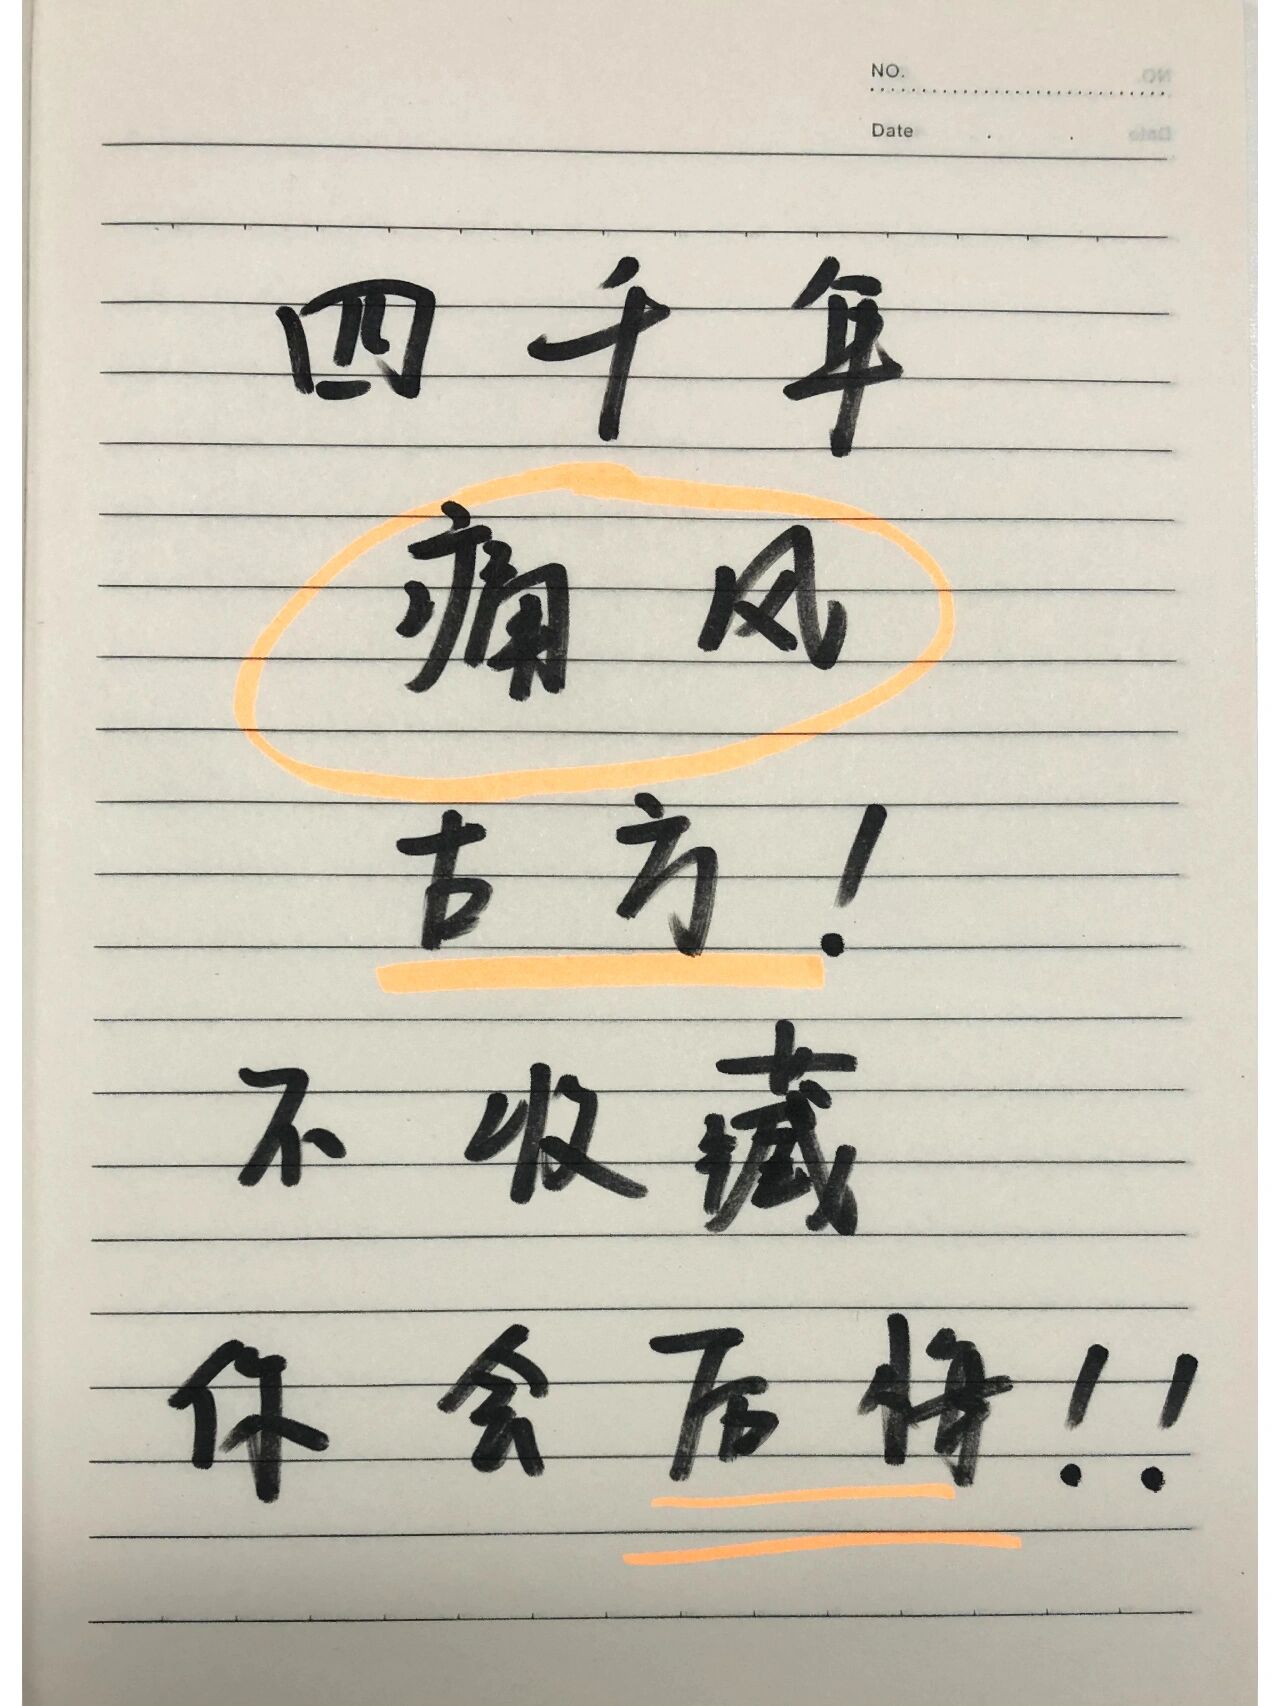 NO.
Date
四千年
痛风
古方!
不收藏
你会后悔!!